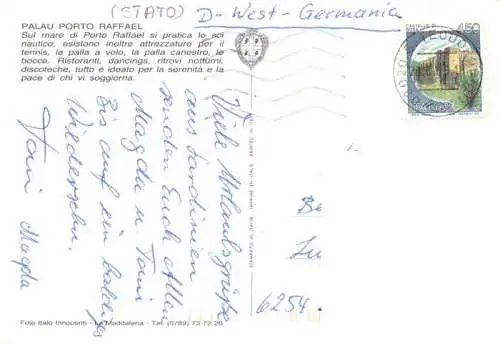 (STATO) D-West-Germania
PALAU PORTO RAFFAEL
Sul mare di Porto Raffael si pratica lo sci
nautico; esistono inoltre attrezzature per il
tennis, la palla a volo, la palla canestro, le
bocce. Ristoranti, dancings, ritrovi notturni,
discoteche, tutto è ideato per la serenità e la
pace di chi vi soggiorna.
450
Viele Urlaubsgrüße
aus Sardinien
senden Euch Allen
Magda u. Toni
Bis auf ein baldiges
Wiedersehn.
Toni Magda
Be
Lu
6254.
Foto Italo Innocenti - La Maddalena - Tel. (0789) 73 72 20